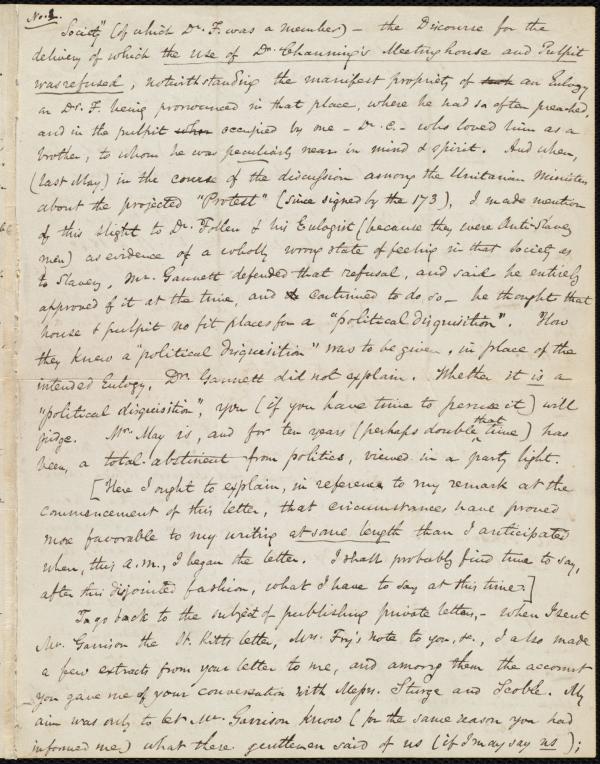 No. 2.
Society" (of which Dr. F. was a member) — the Discourse for the
delivery of which the use of Dr. Channing's Meetinghouse and Pulpit
was refused, notwithstanding the manifest propriety of such an Eulogy
on Dr. F. being pronounced in that place, where he had so often preached,
and in the pulpit when occupied by one — Dr. C. — who loved him as a
brother, to whom he was peculiarly near in mind & spirit. And when,
(last May) in the course of the discussion among the Unitarian Ministers
about the projected "Protest" (since signed by the 173), I made mention
of this slight to Dr. Follen & his Eulogist (because they were Anti-Slavery
men) as evidence of a wholly wrong state of feeling in that Society as
to Slavery, Mr. Gannett defended that refusal, and said he entirely
approved of it at the time, and continued to do so — he thought that
house & pulpit no fit places for a "political disquisition". How
they knew a "political disquisition" was to be given, in place of the
intended Eulogy, Dr. Gannett did not explain. Whether it is a
"political disquisition", you (if you have time to peruse it) will
judge. Mr. May is, and for ten years (perhaps double that time) has
been, a total-abstinent from politics, viewed in a party light.
[Here I ought to explain, in reference to my remark at the
commencement of this letter, that circumstances have proved
more favorable to my writing at some length than I anticipated
when, this a.m., I began the letter. I shall probably find time to say,
after this disjointed fashion, what I have to say at this time.]
To go back to the subject of publishing private letters, — when I sent
Mr. Garrison the St. Kitts letter, Mrs. Fry's note to you, &c., I also made
a few extracts from your letter to me, and among them the account
you gave me of your conversation with Messrs. Sturge and Scoble. My
aim was only to let Mr. Garrison know (for the same reason you had
informed me) what these gentlemen said of us (if I may say us);